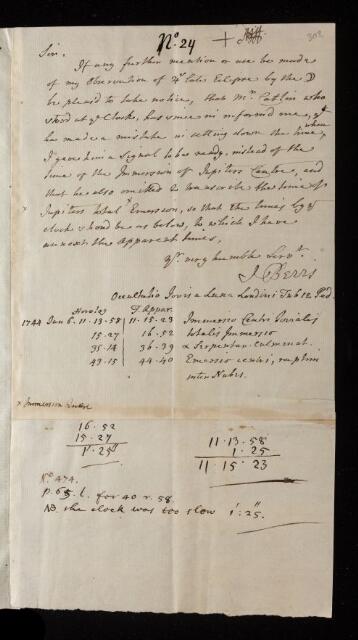 No. 24
302
Sir.
If any further mention or use be made
of my Observation of ye late Eclipse by the ☽
be pleased to take notice, that Mr. Catlin who
stood at ye Clock, has since informed me, yt
he made a mistake in setting down the time, when
I gave him a Signal to be ready, instead of the
time of the Immersion of Jupiters Centre, and
that he also omitted to transcribe the time of
Jupiters total Emersion, so that the times by ye
clock should be as below, to which I have
annext the apparent times,
yr. very humble Servt.
J. Bevis
Occultatio Jovis a Luna Londini Tub 12 Ped
Horolog T. Appar.
1744 Jun 6. 11-13-58 11-15-23 Immersio Centri Jovialis
15-27 16-52 totalis Immersio
35-14 36-39 α Serpentar. culminat.
43-15 44-40 Emersio centri, raptim
inter Nubes.
x Immersion Centre
16-52
15-27
1'-25"
11-13-58
1-25
11 15 23
No 474.
p. 65. l. for 40 r. 58.
NB. the clock was too slow 1':25".